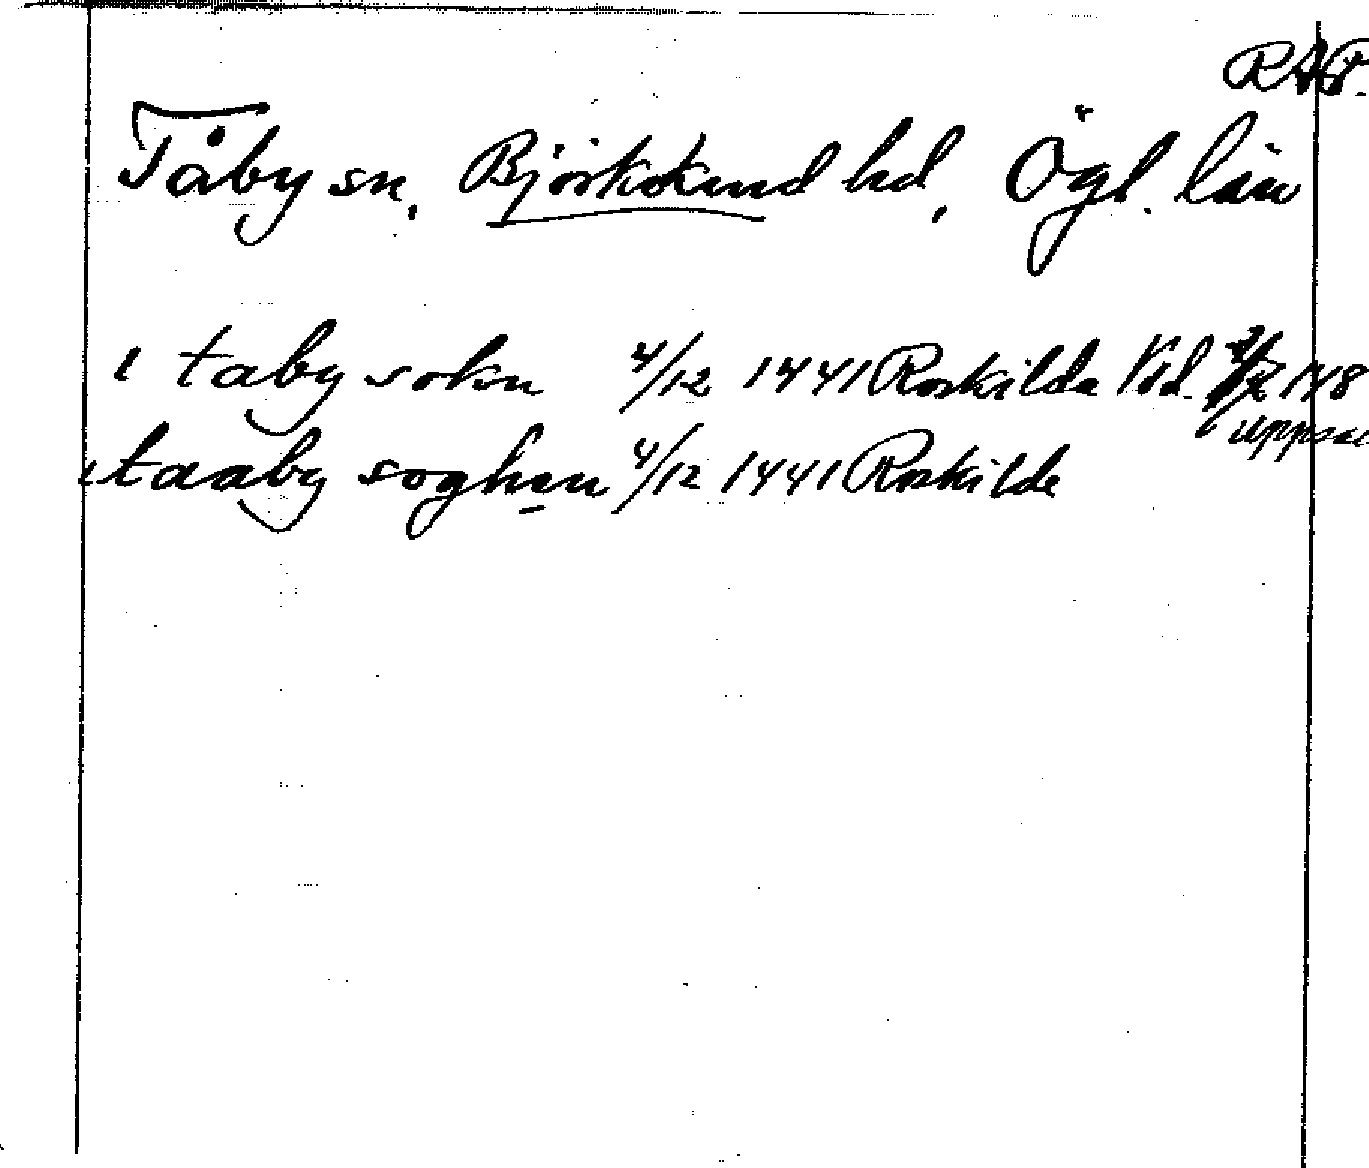 RAP.
Tåby sn, Björkekind hd, Ögl. län
i taby sokn 4/12 1441 Roskilde Vid. 148
Uppsa
i taaby soghen 4/12 1441 Roskilde